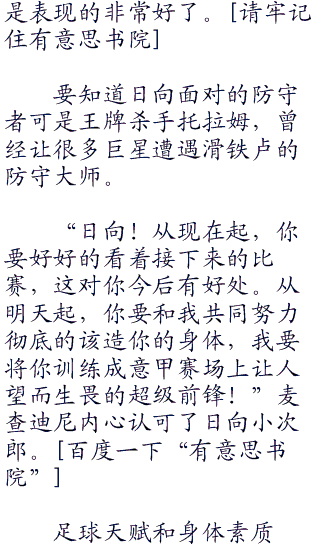 是表现的非常好了。[请牢记
住有意思书院]
要知道日向面对的防守
者可是王牌杀手托拉姆，曾
经让很多巨星遭遇滑铁卢的
防守大师。
“日向！从现在起，你
要好好的看着接下来的比
赛，这对你今后有好处。从
明天起，你要和我共同努力
彻底的该造你的身体，我要
将你训练成意甲赛场上让人
望而生畏的超级前锋！”麦
查迪尼内心认可了日向小次
郎。[百度一下“有意思书
院”]
足球天赋和身体素质